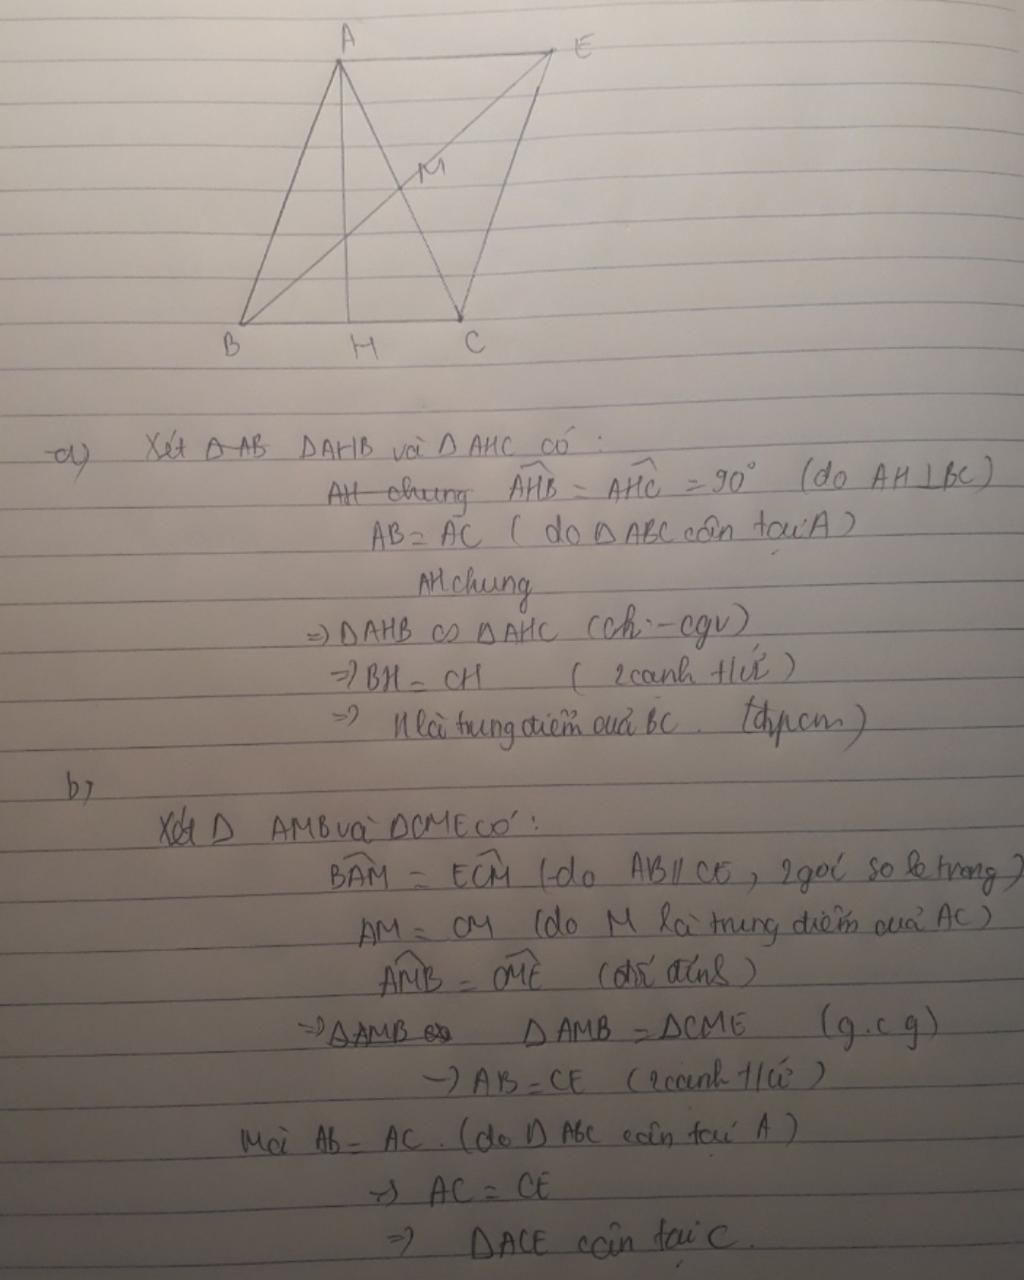 A
E
M
B
H
C
a) Xét ΔAB ΔAHB và ΔAHC có :
AH chung AHB = AHC = 90° (do AH ⊥ BC)
AB = AC ( do Δ ABC cân tại A )
AH chung
=> ΔAHB ∽ ΔAHC (ch - cgv)
=> BH = CH ( 2 cạnh t/ứ )
=> H là trung điểm của BC . (đpcm)
b)
Xét Δ AMB và ΔCME có :
BAM = ECM (do AB // CE , 2 góc so le trong)
AM = CM (do M là trung điểm của AC)
AMB = CME (đối đỉnh)
=> ΔAMB Δ AMB = ΔCME (g.c.g)
-> AB = CE (2 cạnh t/ứ )
Mà AB = AC . (do Δ ABC cân tại A )
-> AC = CE
=> ΔACE cân tại C .